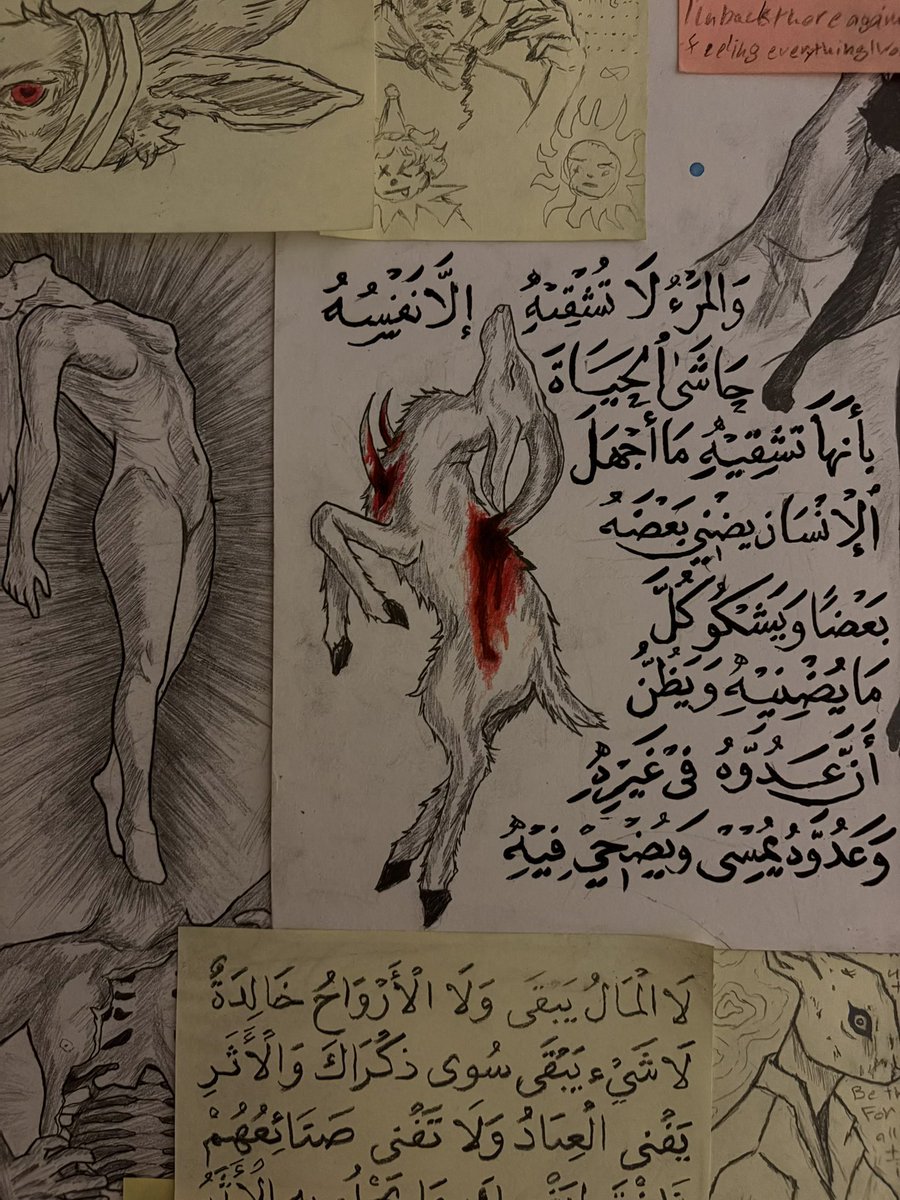 I'm back there again
feeling everything
وَالمَرْءُ لَا تُشْقِيهِ إِلَّا نَفْسُهُ
حَاشَى ٱلْحَيَاةَ
بِأَنَّهَا تُشْقِيهِ مَا أَجْهَلَ
ٱلْإِنْسَانَ يُضْنِي بَعْضُهُ
بَعْضًا وَيَشْكُو كُلَّ
مَا يُضْنِيهِ وَيَظُنُّ
أَنَّ عَدُوَّهُ فِي غَيْرِهِ
وَعَدُوُّهُ يُمْسِي وَيُضْحِي فِيهِ
لَا الْمَالُ يَبْقَى وَلَا الْأَرْوَاحُ خَالِدَةٌ
لَا شَيْءَ يَبْقَى سُوى ذِكْرَاكَ وَالْأَثَرِ
يَفْنى الْعِبَادُ وَلَا تَفْنى صَنَائِعُهُمْ
Be th
For
all